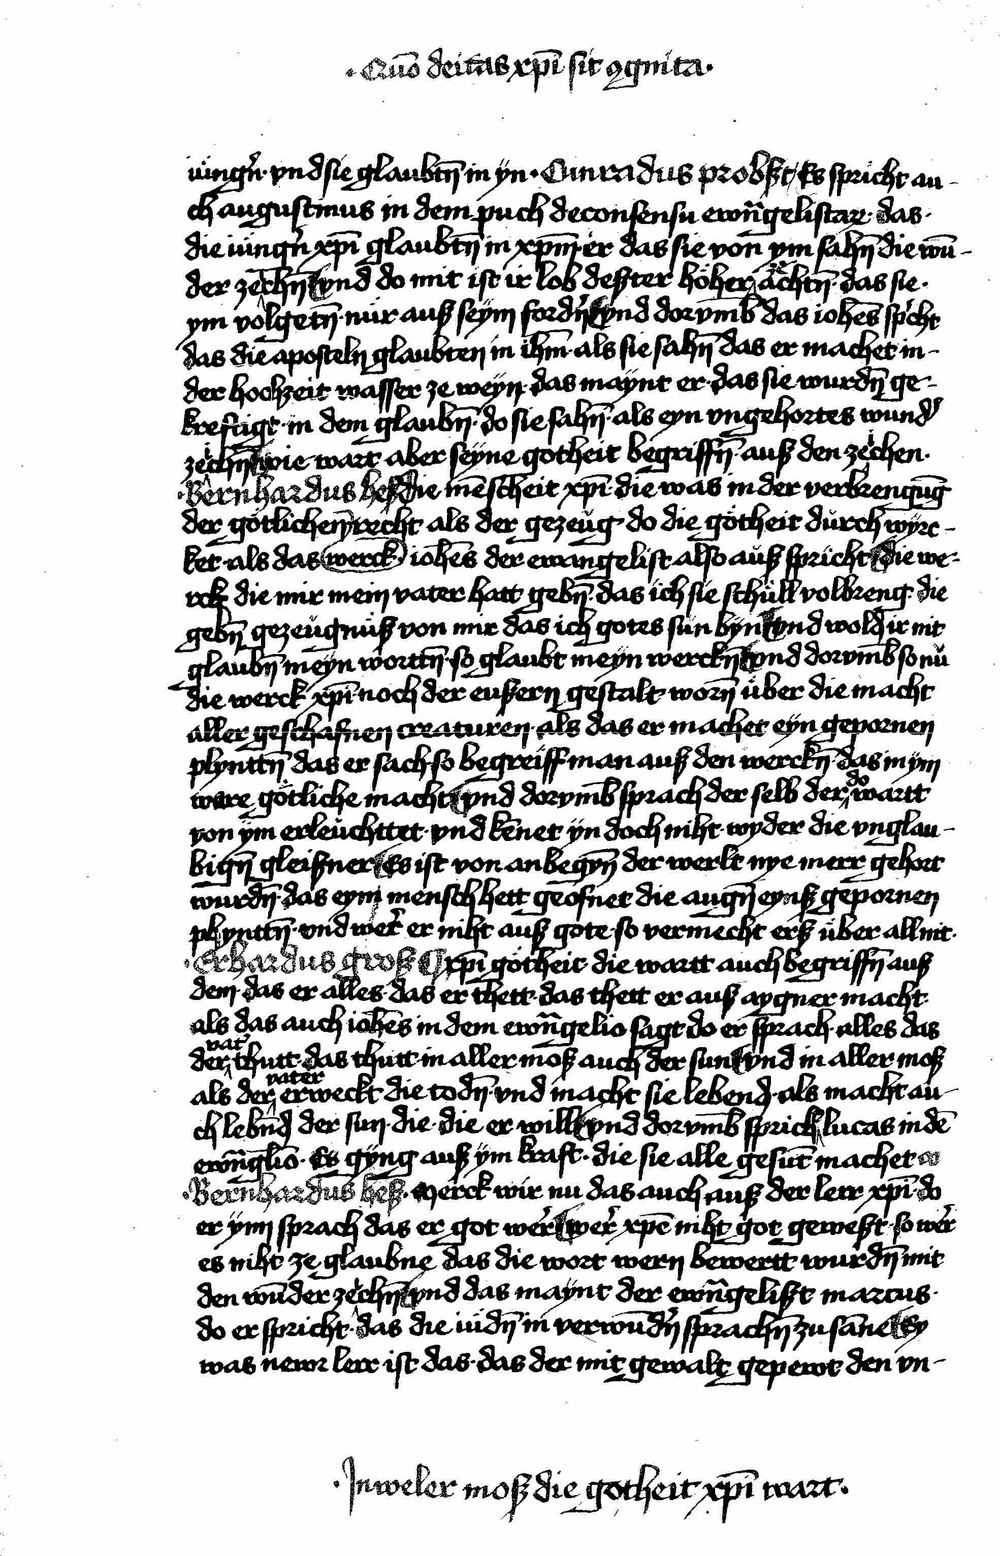 · Quo͞ deitas xp̄i sit ꝯgnita ·
iu̇ngn̄· vnd sie glaubtn̄ in yn · Cunradus probst / Es spricht au-
ch augustinus in dem puch de consensu ewn̄gelistaꝝ · das ·
die iu̇ngn̄ xp̄i glaubtn̄ in xpm̄· er das sie von ym sahn̄ die wū-
der zechn̄ vnd do mit ist ir lob dester höher achtn̄· das sie ·
ym volgetn̄· nu̇r auß seym fordn̄ vnd dorvmb̄ das ioh̄es sp̄cht
das die aposteln glaubten in ihm̄· als sie sahn̄ das er machet in-
der hochzeit wasser ze weyn· das maynt er· das sie wurdn̄ ge-
kreftigt· in dem glaubn̄· do sie sahn̄· als eyn vngehortes wund̾
zechn̄ wie wart aber seyne gotheit begriffn̄· auß den zechen ·
· Bernhardus heß die mēscheit xp̄i· die was in der verbrengūg
der götlichen recht als der gezeüg· do die gotheit du̇rch wyrc-
ket· als das werck· ioh̄es der ewangelist also auß spricht die we-
rck die mir mein vater hatt gebn̄· das ich sie schüll volbreng· die
gebn̄ gezeügnüß von mir das ich gotes sun byn vnd wolt ir nit
glaubn̄ meyn worttn̄· so glaubt meyn werckn̄ vnd dorvmb̄ so nu̇
die werck xp̄i· noch der eußern gestalt worn̄ über die macht
aller geschafnen creaturen· als das er machet eyn gepornen
plynttn̄ das er sach· so begreiff man auß den werckn̄· das in ym
were götliche macht vnd dorvmb̄ sprach der selb der do wartt
von ym erleu̇chttet· vnd kēnet yn doch niht· wyder die vnglau-
bign̄ gleißner Es ist von anbegyn̄ der werlt nye merr gehort
wurdn̄· das eym mensch hett geofnet die augn̄ eynß gepornen
plynttn̄· vnd wer̾ er niht auß gote· so vermecht erß über all nit·
· Erhardus groß xp̄i gotheit· die wartt auch begriffn̄ auß
dem· das er alles· das er thett· das thett er auß aygner macht·
als das auch ioh̄es in dem ewn̄gelio sagt· do er sprach· alles das
der vat̾ thutt· das thutt in aller moß auch der sun vnd in aller moß
als der vater erweckt die todn̄· vnd macht sie lebend· als macht au-
ch lebn̄d der sun· die· die er will vnd dorvmb̄ sprich lucas in dē
ewn̄glio͞· Es gyng auß ym kraft· die sie alle gesūt machet
· Bernhardus heß · Merck wir nu das auch auß der lerr xp̄i· do
er ynn sprach das er got wer̾ wer̾ xpē niht got gewest· so wer̾
es niht ze glaubne das die wort wern bewertt wurdn̄ mit
den wu͞nder zechn̄ vnd das maynt der ewn̄gelist marcus·
do er spricht· das die iu̇dn̄ in verwu͞dn̄ sprachn̄ zu sāne Ey
was newr lerr ist das· das der mit gewalt gepewt den vn-
· In weler moß die gotheit xp̄i wart ·